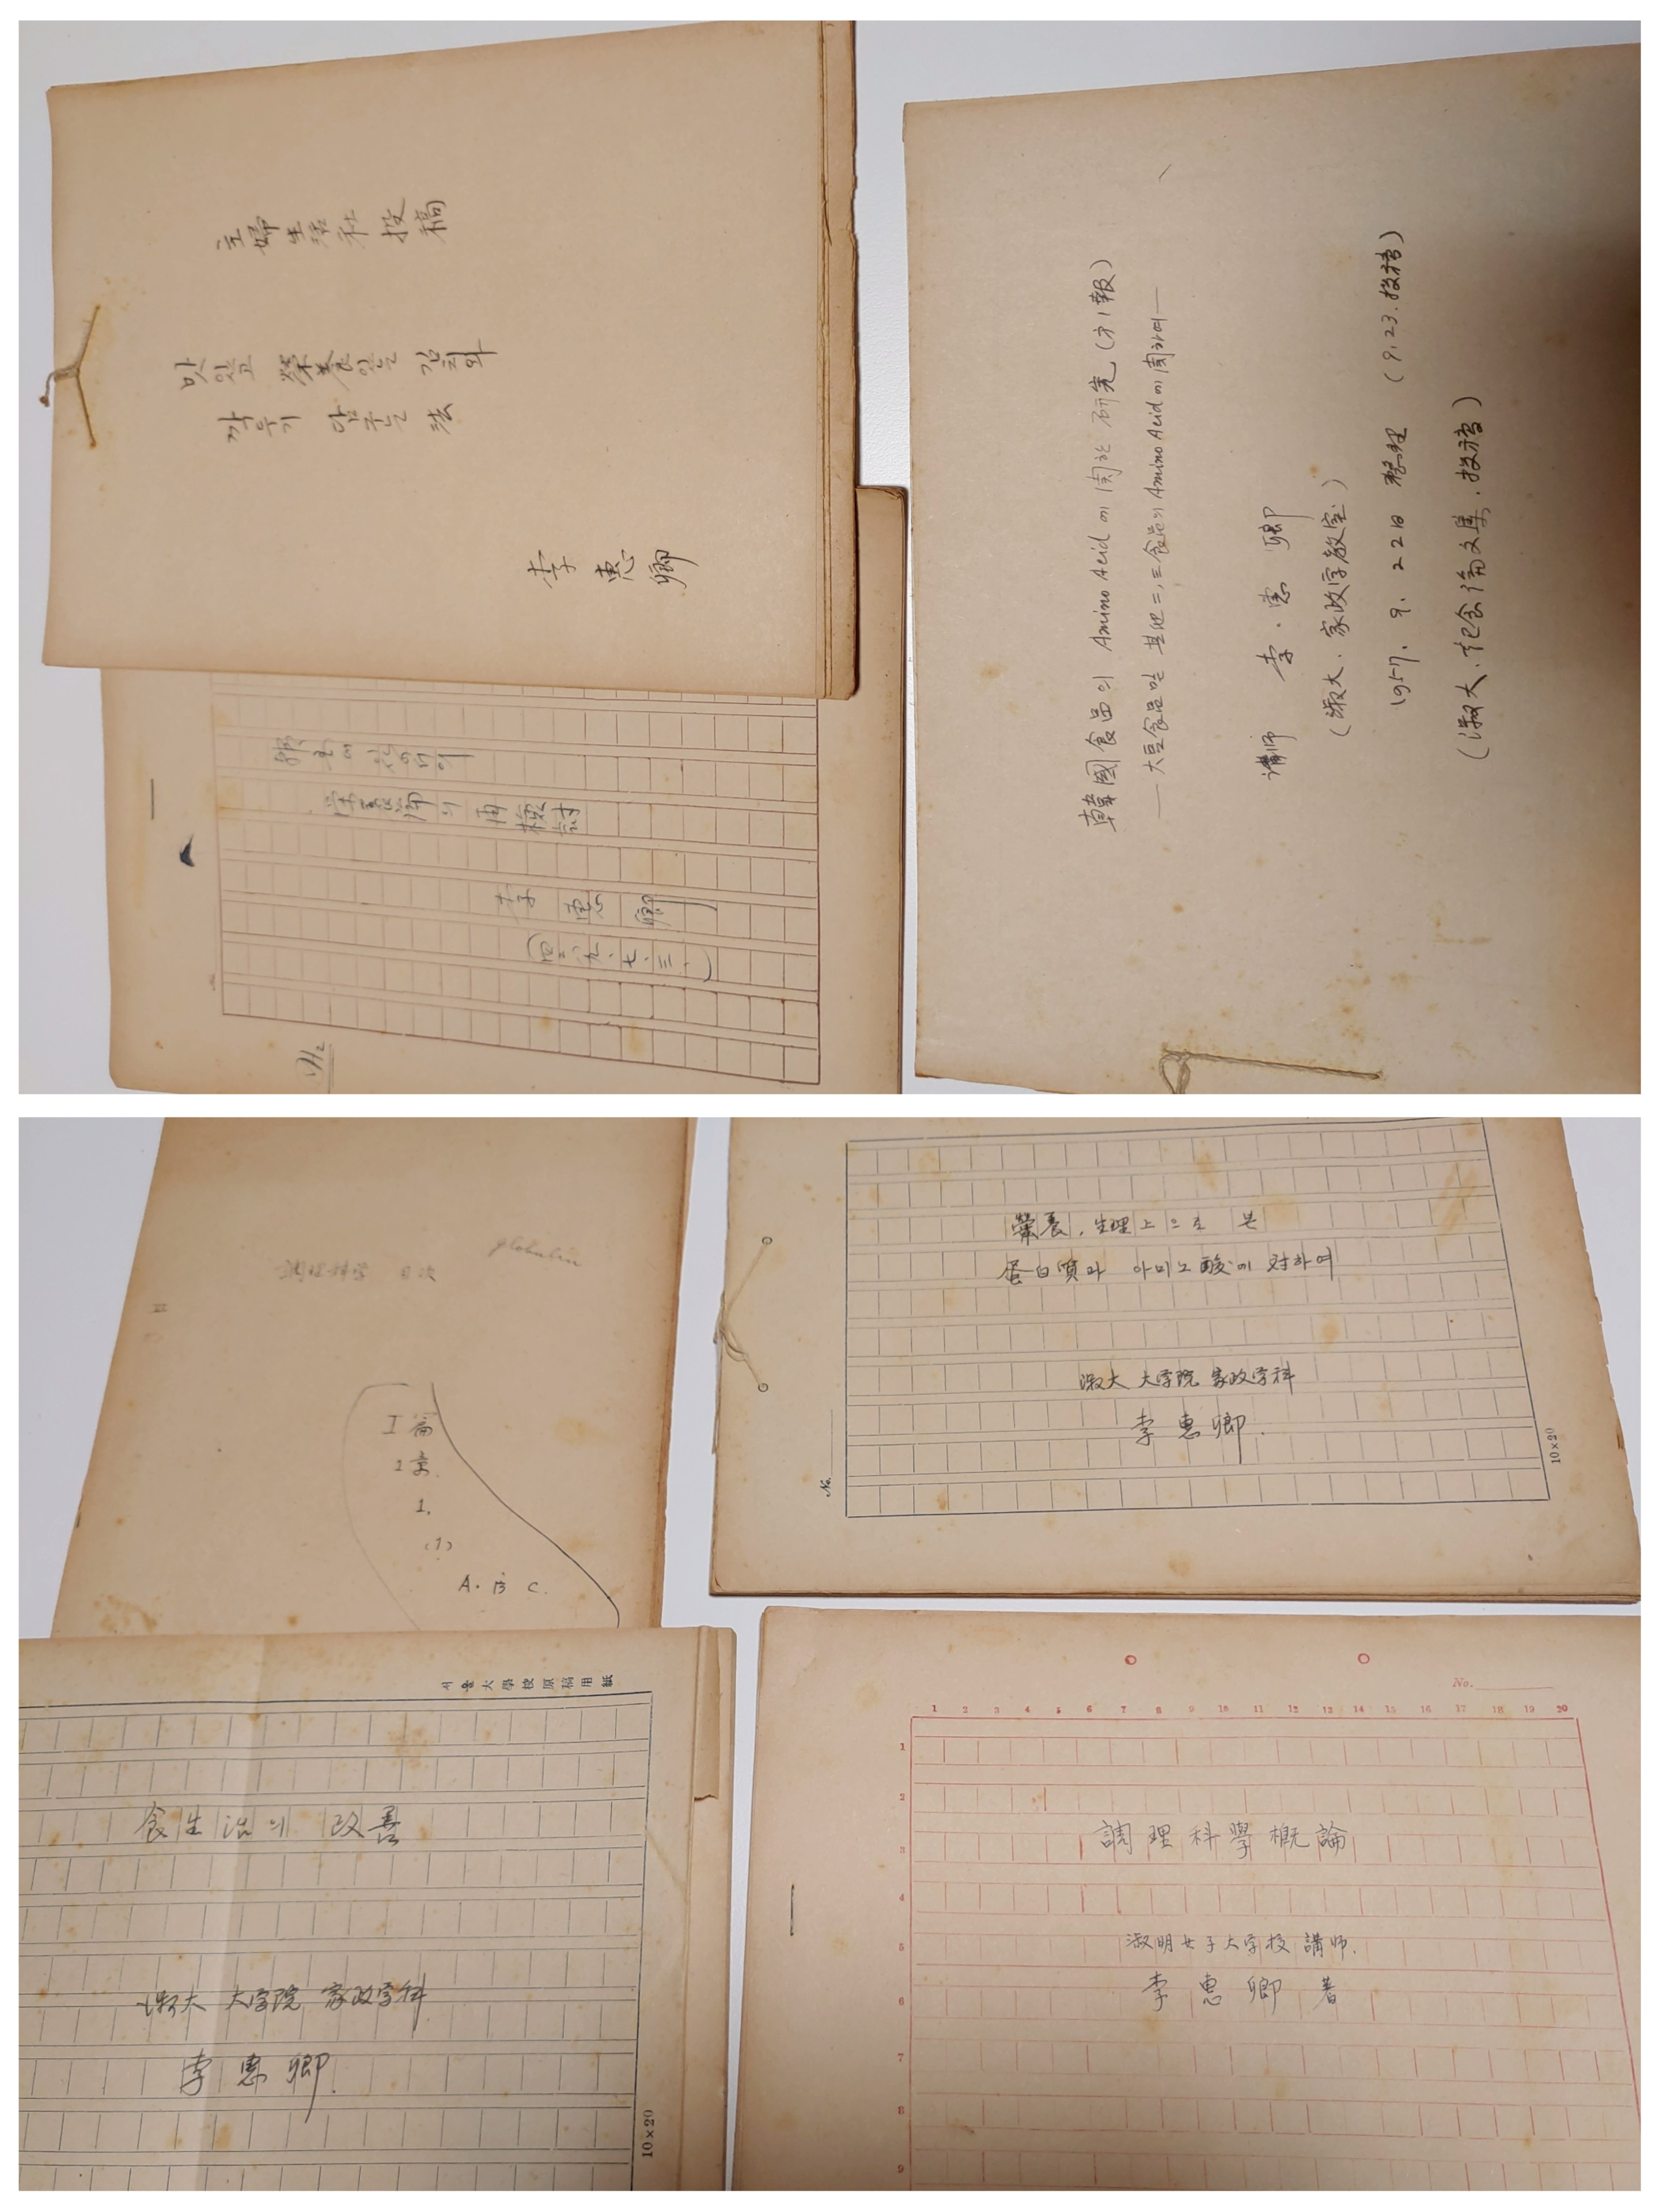 主婦生活社 投稿
맛있고 榮養있는 김치와
깍두기 담구는 法
李惠卿
再檢討
李惠卿
(四二八九、七、三、)
韓國食品의 Amino Acid에 関한 研究 (才1報)
— 大豆食品및 其他二,三食品의 Amino Acid에 関하여 —
講师 李·惠卿
(淑大、家政学教室)
1957. 9. 22日 整理 (9.23.投稿)
(淑大、記念論文集、投稿)
調理科学 目次
globulin
I 篇
2 章.
1.
(1)
A. B C.
榮養,生理上으로 본
蛋白質과 아미노酸에 対하여
淑大 大学院 家政学科
李惠卿.
No.
10×20
서울大學校原稿用紙
食生活의 改善
淑大 大学院 家政学科
李惠卿.
10×20
No.
1 2 3 4 5 6 7 8 9 10 11 12 13 14 15 16 17 18 19 20
1
2
3
4
5
6
7
8
9
調理科學概論
淑明女子大学校 講师.
李惠卿 著